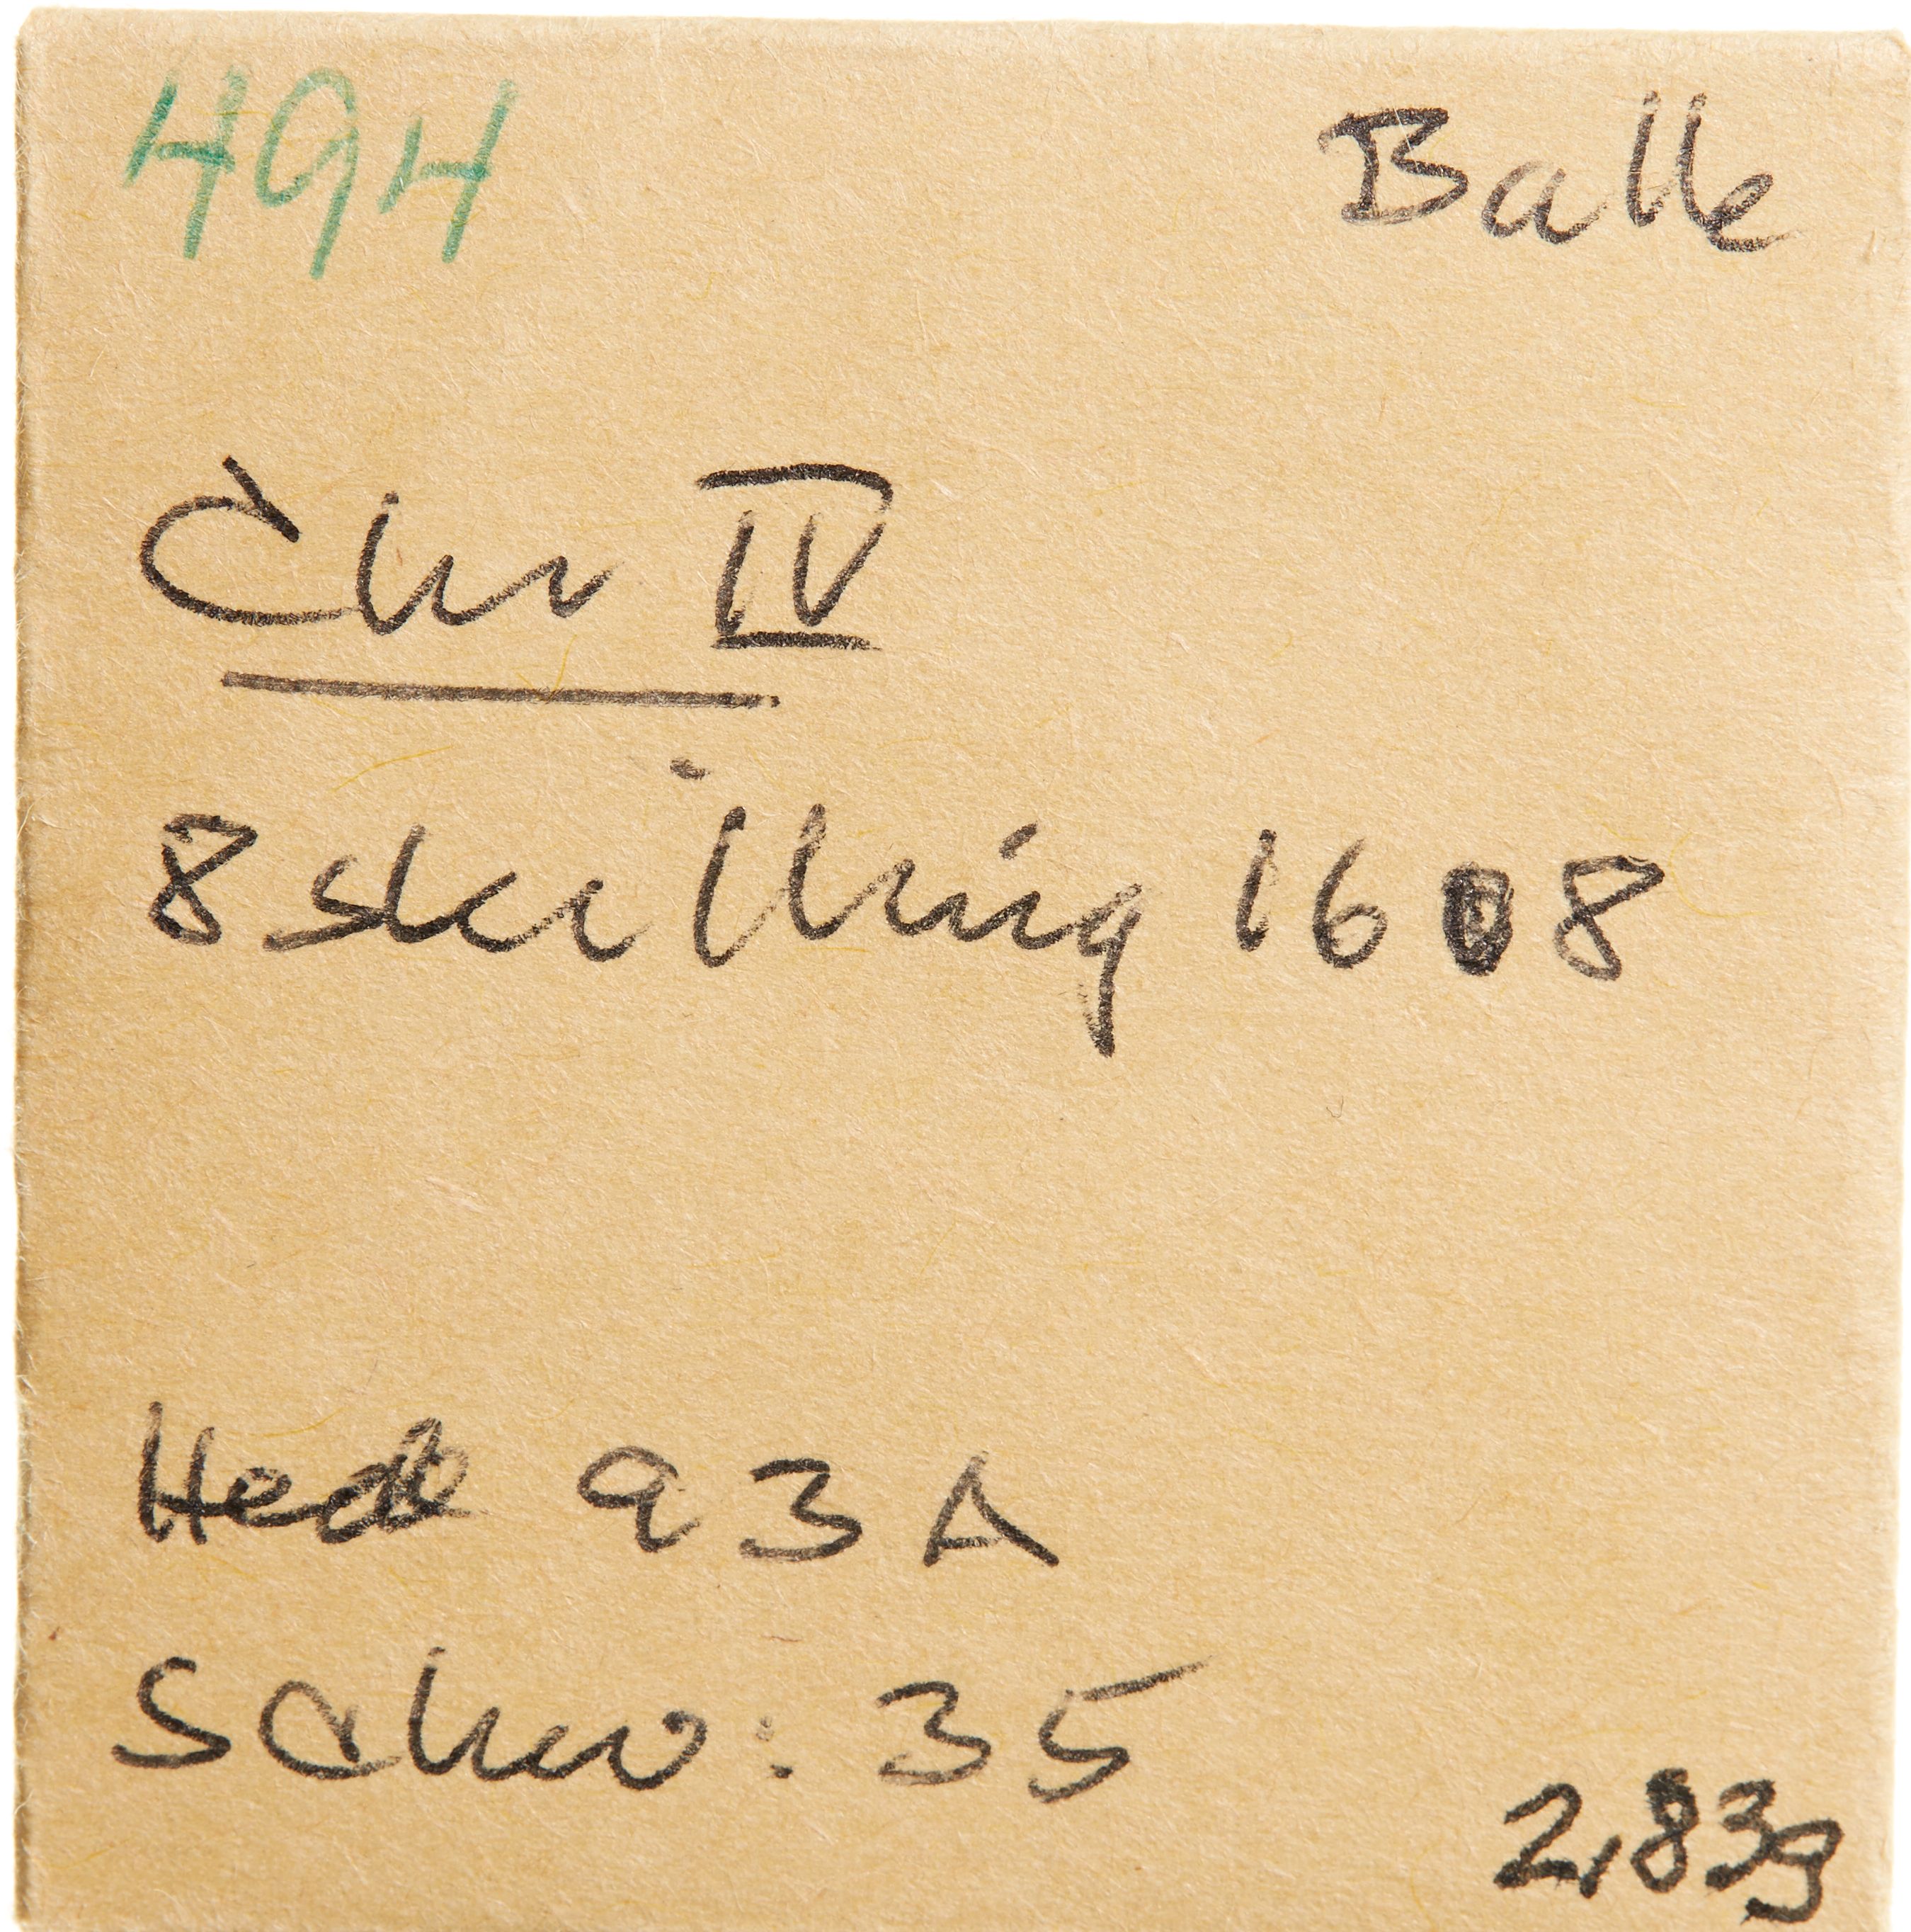 494 Balle
Chr IV
8 skilling 1608
Hede 93 A
Schou: 35
2,83g